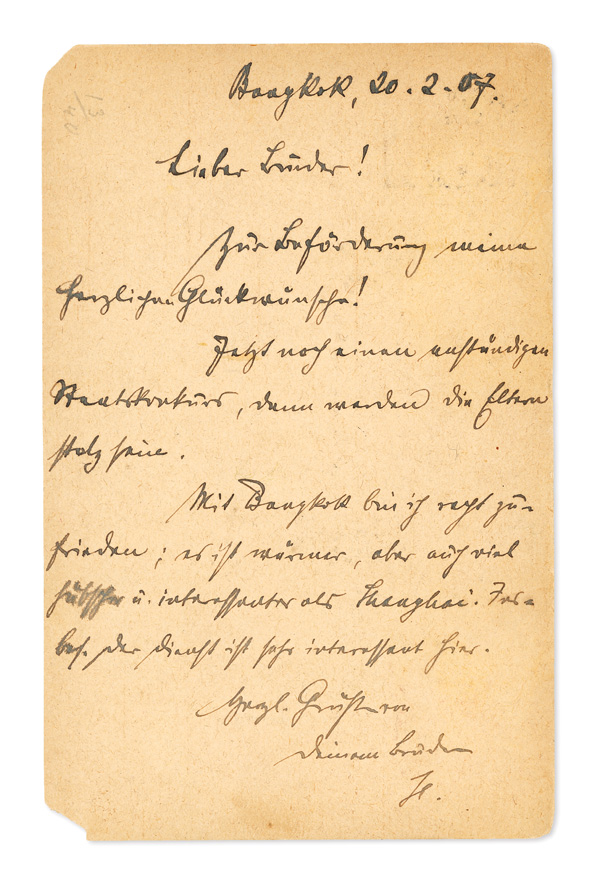 Bangkok, 20.2.07.
Lieber Bruder!
Zur Beförderung meine
herzlichen Glückwünsche!
Jetzt noch einen anständigen
Staatskonkurs, dann werden die Eltern
stolz sein.
Mit Bangkok bin ich recht zu=
frieden; es ist wärmer, aber auch viel
hübscher u. interessanter als Shanghai. Ins=
bes. der Dienst ist sehr interessant hier.
Herzl. Grüße von
Deinem Bruder